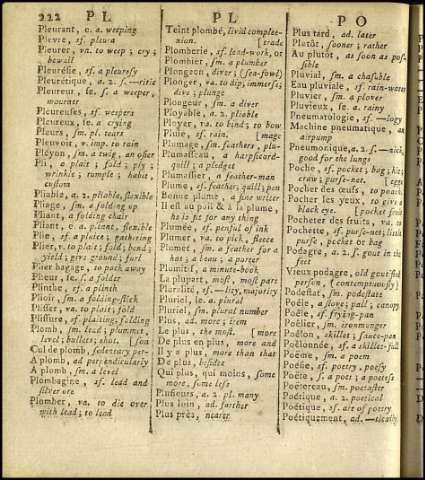 222 PL
PL
PO
Pleurant, e. a. weeping
Pleure, sf. plura
Pleurer, va. to weep; cry;
bewail
Pleurésie, sf. a pleuresy
Pleurétique, a. 2 s.—ritic
Pleureur, se. s. a weeper,
mourner
Pleureuses, sf. weepers
Pleureux, se. a crying
Pleurs, sm. pl. tears
Pleuvoir, v. imp. to rain
Pleyon, sm. a twig, an osier
Pli, a plait; fold; ply;
wrinkle; rumple; habit,
custom
Pliable, a. 2. pliable, flexible
Pliage, sm. a folding up
Pliant, a folding chair
Pliant, e. a. pliant, flexible
Plie, sf. a plaice; gathering
Plier, v. to plait; fold; bend;
yield; give ground; furl
Plier bagage, to pack away
Plieur, se. s. a folder
Plinthe, sf. a plinth
Plioir, sm. a folding-stick
Plisser, va. to plait, fold
Plissure, sf. plaiting; folding
Plomb, sm. lead; plummet,
level; bullets; shot. [son
Cul de plomb, sedentary per-
A plomb, ad. perpendicularly
A plomb, sm. a level
Plombagine, sf. lead and
silver ore
Plomber, va. to die over
with lead; to lead
Teint plombé, livid complec-
tion. [trade
Plomberie, sf. lead-work, or
Plombier, sm. a plumber
Plongeon, diver; (sea-fowl)
Plonger, va. to dip; immerse;
dive; plunge
Plongeur, sm. a diver
Ployable, a. 2. pliable
Ployer, va. to bend; to bow
Pluie, sf. rain. [mage
Plumage, sm. feathers, plu-
Plumasseau, a harpsicord-
quill; a pledget
Plumassier, a feather-man
Plume, sf. feather; quill; pen
Bonne plume, a fine writer
Il est au poil & à la plume,
he is fit for any thing
Plumée, sf. penful of ink
Plumer, va. to pick, fleece
Plumet, sm. a feather for a
hat; a beau; a porter
Plumitif, a minute-book
La plupart, most, most part
Pluralité, sf.—lity, majority
Pluriel, le. a. plural
Pluriel, sm. plural number
Plus, ad. more; item
Le plus, the most. [more
De plus en plus, more and
Il y a plus, more than that
De plus, besides
Qui plus, qui moins, some
more, some less
Plusieurs, a. 2. pl. many
Plus loin, ad. farther
Plus près, nearer
Plus tard, ad. later
Plutôt, sooner; rather
Au plutôt, as soon as pos-
sible
Pluvial, sm. a chasuble
Eau pluviale, sf. rain-water
Pluvier, sm. a plover
Pluvieux, se. a. rainy
Pneumatologie, sf.—logy
Machine pneumatique, an
airpump
Pneumonique, a. 2. s.—nick,
good for the lungs
Poche, sf. pocket; bag; kit;
craw; purse-net. [eggs
Pocher des œufs, to poach
Pocher les yeux, to give a
black eye. [pocket fruit
Pocheter des fruits, va. to
Pochette, sf. purse-net; little
purse, pocket or bag
Podagre, a. 2. s. gout in the
feet
Vieux podagre, old gouty
person, (contemptuously)
Podestat, sm. podestate
Poêle, a stove; pall; canopy
Poêle, sf. frying-pan
Poêlier, sm. ironmonger
Poêlon, skillet; sauce-pan
Poêlonnée, sf. a skillet-full
Poëme, sm. a poem
Poësie, sf. poetry, poesy
Poëte, s. a poet; a poetess
Poëtereau, sm. poetaster
Poëtique, a. 2. poetical
Poëtique, sf. art of poetry
Poëtiquement, ad.—tically